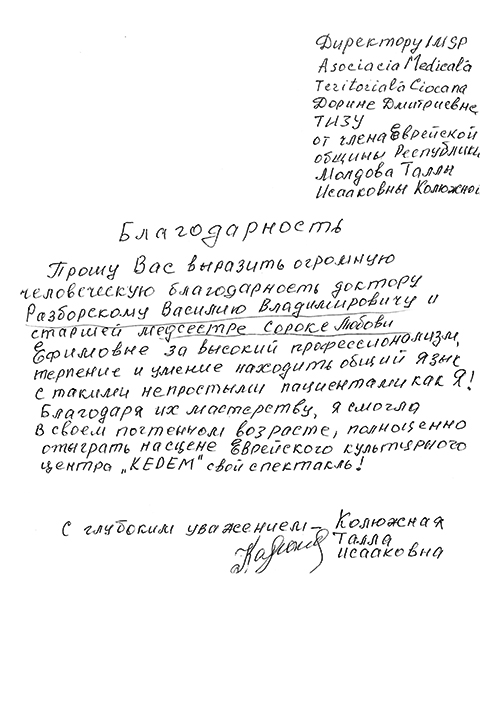 Директору IMSP
Asociacia Medicală
Teritorială Ciocana
Дорине Дмитриевне
ТИЗУ
от члена Еврейской
общины Республики
Молдова Таллы
Исааковны Колюжной
Благодарность
Прошу Вас выразить огромную
человеческую благодарность доктору
Разборскому Василию Владимировичу и
старшей медсестре Сороке Любови
Ефимовне за высокий профессионализм,
терпение и умение находить общий язык
с такими непростыми пациентами как Я!
Благодаря их мастерству, я смогла
в своем почтенном возрасте, полноценно
отыграть на сцене Еврейского культурного
центра „KEDEM" свой спектакль!
С глубоким уважением – Колюжная
Талла
Исааковна